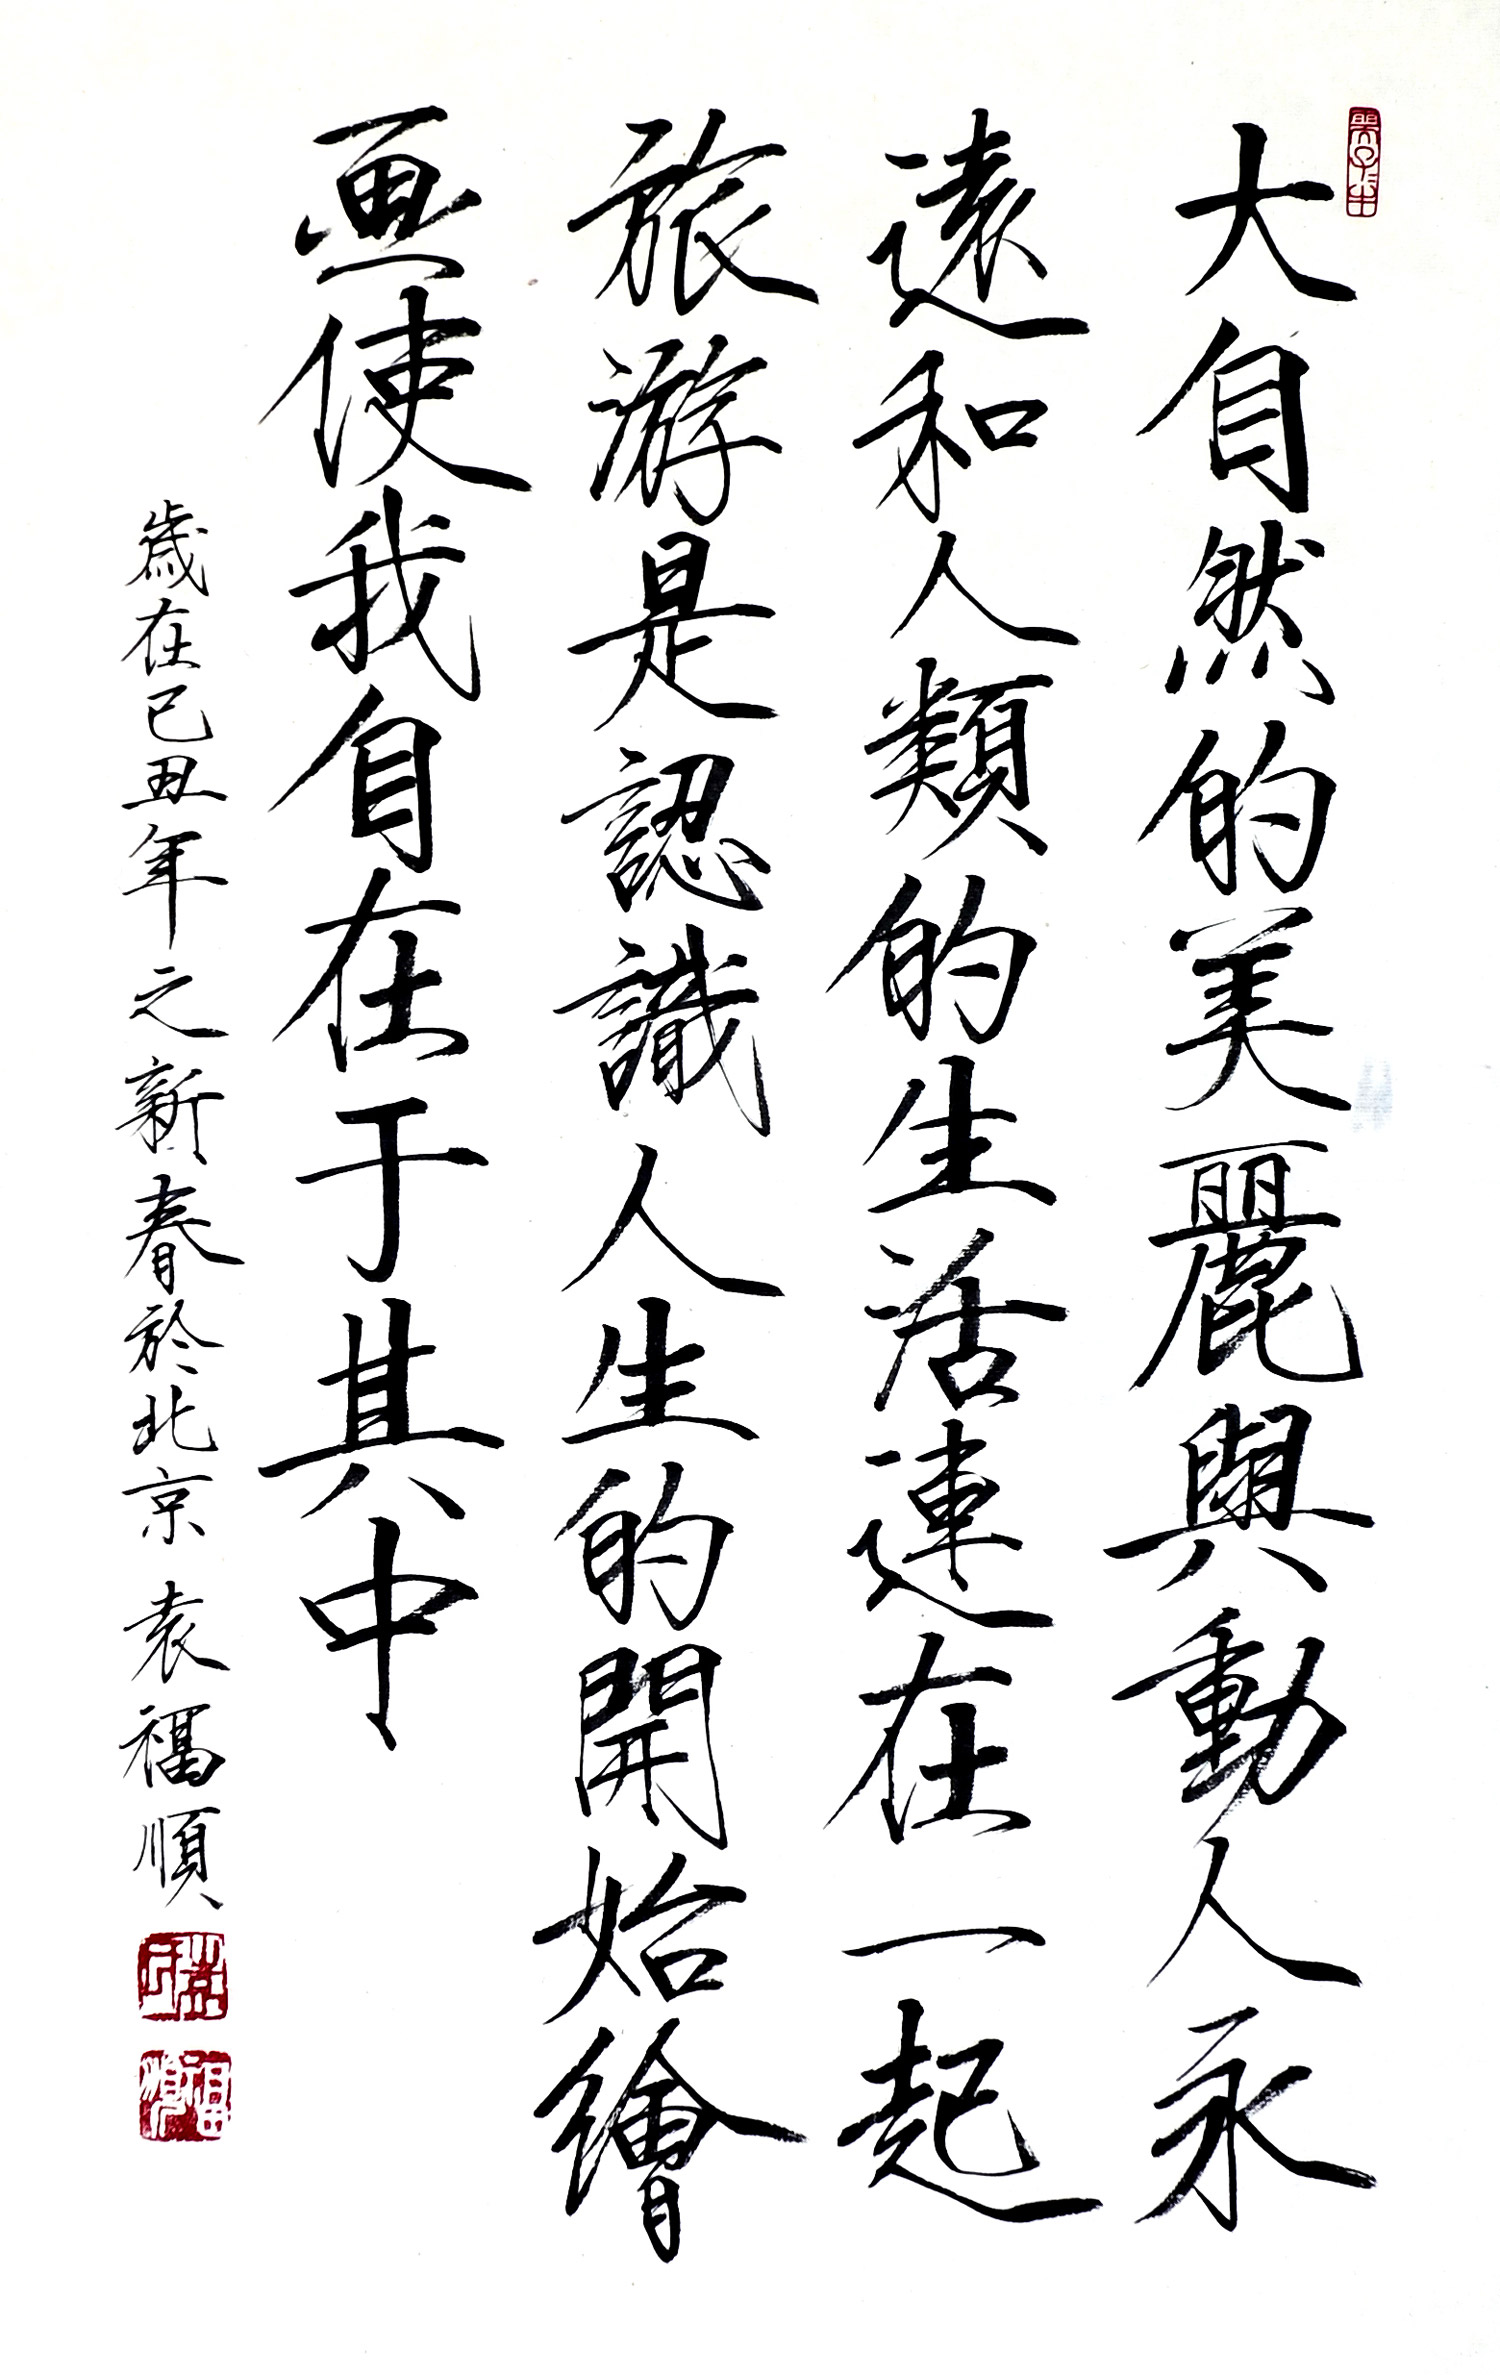 大自然的美麗與動人永
遠和人類的生活連在一起
旅游是認識人生的開始繪
画使我自在于其中
歲在己丑年之新春於北京 袁福順